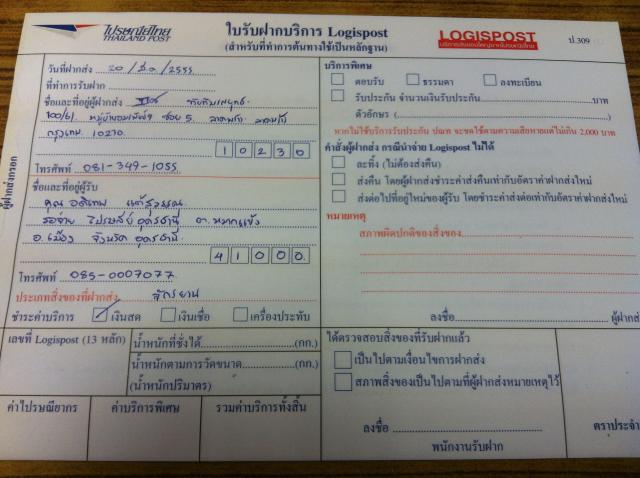 ไปรษณีย์ไทย
THAILAND POST
ใบรับฝากบริการ Logispost
(สำหรับที่ทำการต้นทางใช้เป็นหลักฐาน)
LOGISPOST
ป.309
ผู้ฝากส่งกรอก
วันที่ฝากส่ง 20 / มี.ค / 2555
ที่ทำการรับฝาก
ชื่อและที่อยู่ผู้ฝากส่ง
100/61 ซอย 5 ลาดพร้าว ลาดพร้าว
กรุงเทพ 10230
10230
โทรศัพท์ 081-349-1055
ชื่อและที่อยู่ผู้รับ
คุณ
รอจ่าย ไปรษณีย์ อุดรธานี ต.หมากแข้ง
อ.เมือง จังหวัด อุดรธานี
41000
โทรศัพท์ 085-0007077
ประเภทสิ่งของที่ฝากส่ง จักรยาน
ชำระค่าบริการ เงินสด เงินเชื่อ เครื่องประทับ
เลขที่ Logispost (13 หลัก)
น้ำหนักที่ชั่งได้ (กก.)
น้ำหนักตามการวัดขนาด (กก.)
(น้ำหนักปริมาตร)
ค่าไปรษณียากร ค่าบริการพิเศษ รวมค่าบริการทั้งสิ้น
บริการพิเศษ
ตอบรับ ธรรมดา ลงทะเบียน
รับประกัน จำนวนเงินรับประกัน บาท
ตัวอักษร (
หากไม่ใช้บริการรับประกัน ปณท จะชดใช้ตามความเสียหายแต่ไม่เกิน 2,000 บาท
คำสั่งผู้ฝากส่ง กรณีนำจ่าย Logispost ไม่ได้
ละทิ้ง (ไม่ต้องส่งคืน)
ส่งคืน โดยผู้ฝากส่งชำระค่าส่งคืนเท่ากับอัตราค่าฝากส่งใหม่
ส่งต่อไปที่อยู่ใหม่ของผู้รับ โดยชำระค่าส่งต่อเท่ากับอัตราค่าฝากส่งใหม่
หมายเหตุ
สภาพผิดปกติของสิ่งของ
ลงชื่อ ผู้ฝากส่ง
ได้ตรวจสอบสิ่งของที่รับฝากแล้ว
เป็นไปตามเงื่อนไขการฝากส่ง
สภาพสิ่งของเป็นไปตามที่ผู้ฝากส่งหมายเหตุไว้
ลงชื่อ
พนักงานรับฝาก
ตราประจำ